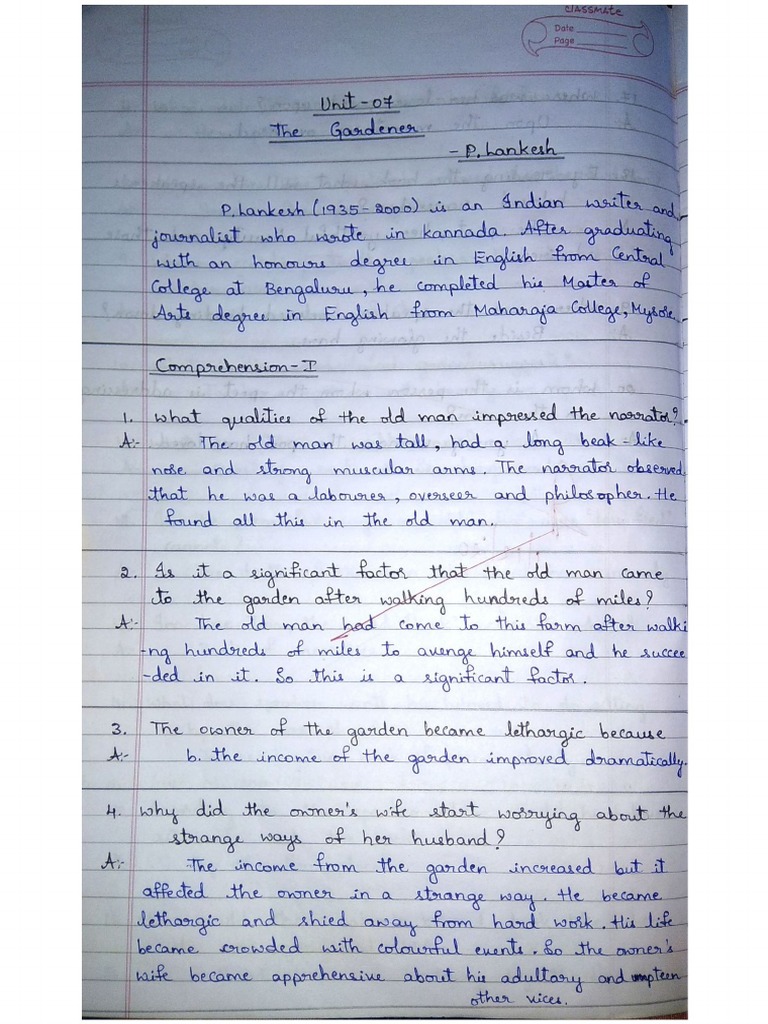 CLASSMATE
Date
Page
Unit-07
The Gardener
- P. Lankesh
P. Lankesh (1935-2000) is an Indian writer and
journalist who wrote in Kannada. After graduating
with an honours degree in English from Central
College at Bengaluru, he completed his Master of
Arts degree in English from Maharaja College, Mysore.
Comprehension-I
1. What qualities of the old man impressed the narrator?
A:- The old man was tall, had a long beak-like
nose and strong muscular arms. The narrator observed
that he was a labourer, overseer and philosopher. He
found all this in the old man.
2. Is it a significant factor that the old man came
to the garden after walking hundreds of miles?
A:- The old man had come to this farm after walki
-ng hundreds of miles to avenge himself and he succee
-ded in it. So this is a significant factor.
3. The owner of the garden became lethargic because
A:- b. the income of the garden improved dramatically.
4. Why did the owner's wife start worrying about the
strange ways of her husband?
A:- The income from the garden increased but it
affected the owner in a strange way. He became
lethargic and shied away from hard work. His life
became crowded with colourful events. So the owner's
wife became apprehensive about his adultary and umpteen
other vices.